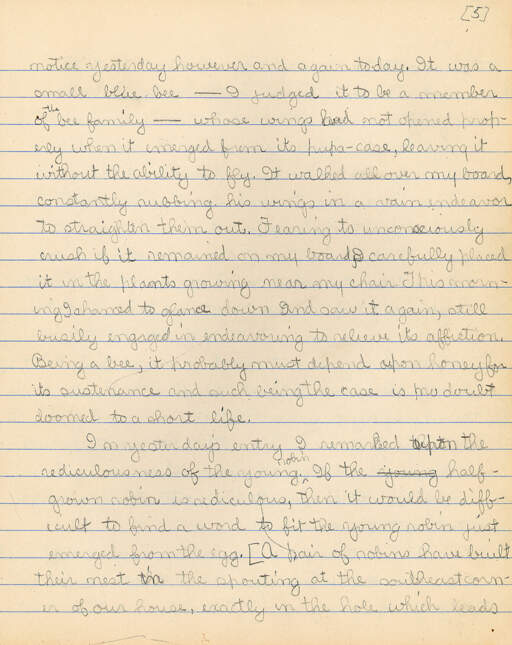 [5]
notice yesterday however and again today. It was a
small blue bee — I judged it to be a member
of the bee family — whose wings had not opened prop-
erly when it emerged from its pupa-case, leaving it
without the ability to fly. It walked all over my board,
constantly rubbing his wings in a vain endeavor
to straighten them out. Fearing to unconsciously
crush if it remained on my board, I carefully placed
it in the plants growing near my chair. This morn-
ing I chanced to glance down and saw it again, still
busily engaged in endeavouring to relieve its affliction.
Being a bee, it probably must depend upon honey for
its sustenance and such being the case is no doubt
doomed to a short life.
In yesterday's entry I remarked upon the
rediculousness of the young robin. If the young half-
grown robin is rediculous, then it would be diff-
icult to find a word to fit the young robin just
emerged from the egg. [A pair of robins have built
their nest in the spouting at the southeast corn-
er of our house, exactly in the hole which leads